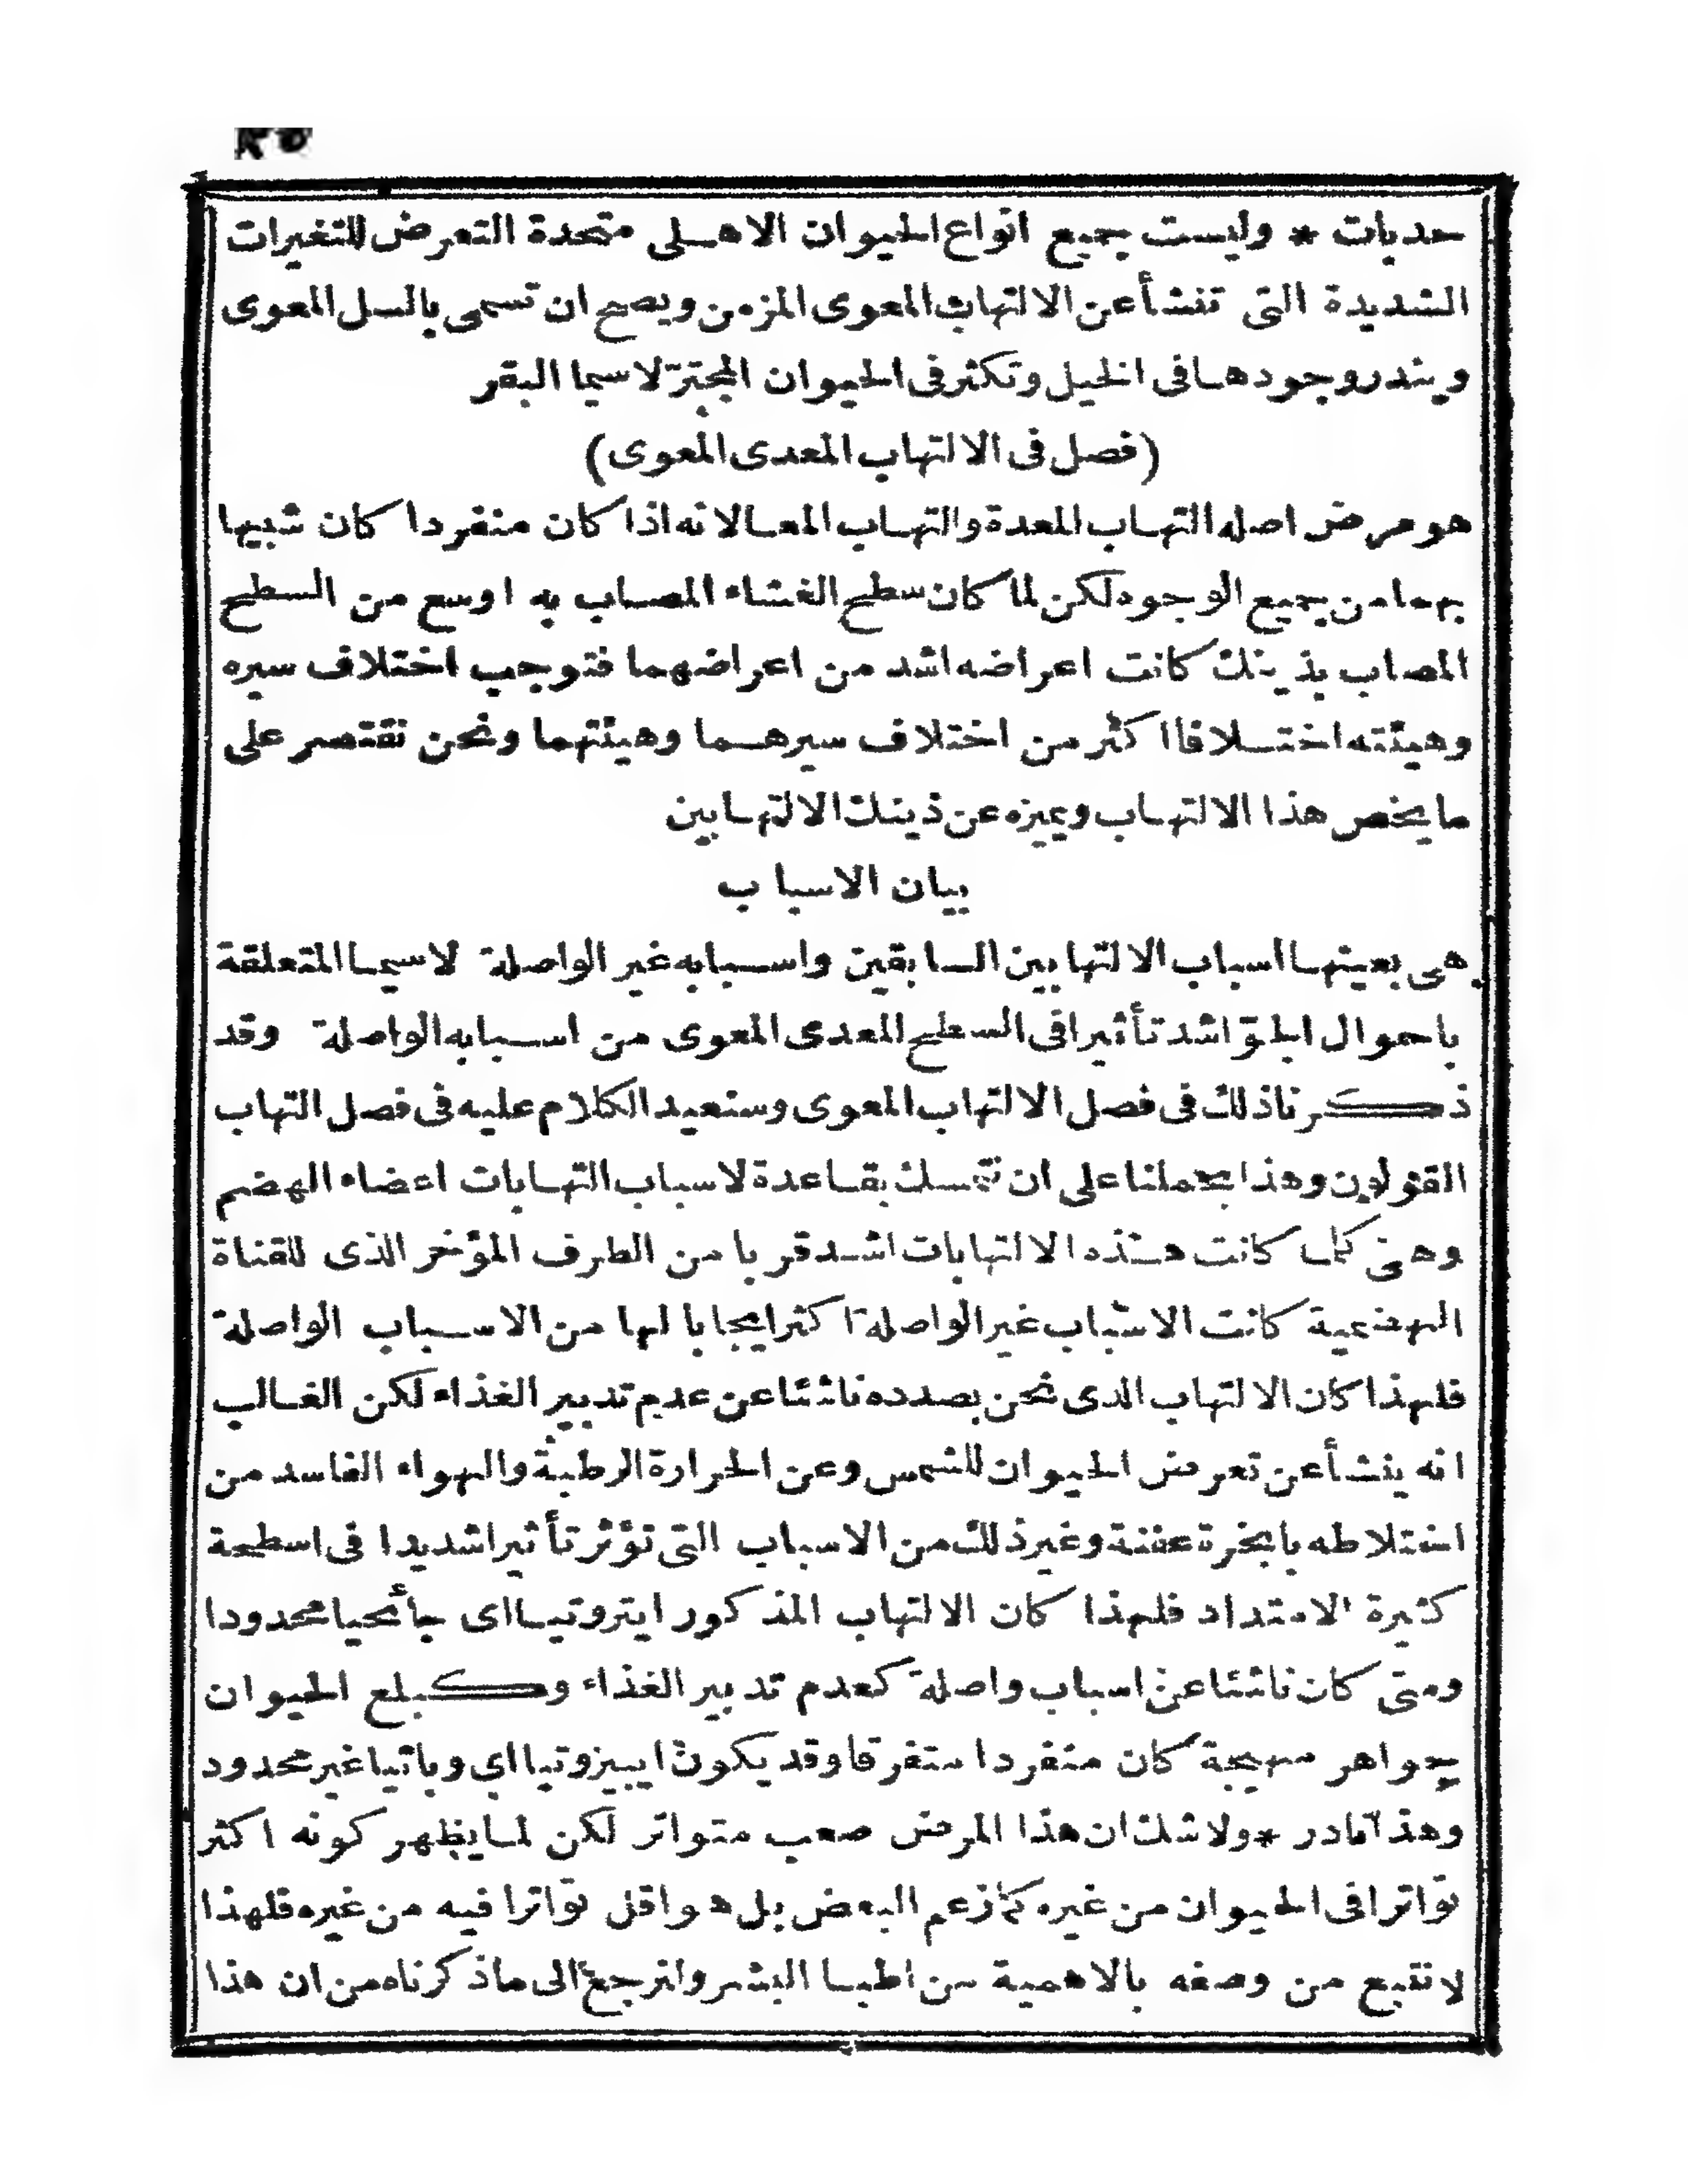 حدبات * وليست جميع انواع الحيوان الاهلى متحدة التعرض للتغيرات
الشديدة التى تنشأ عن الالتهاب المعوى المزمن ويصح ان تسمى بالسل المعوى
ويندر وجودها فى الخيل وتكثر فى الحيوان المجترّ لاسيما البقر
(فصل فى الالتهاب المعدى المعوى)
هو مرض اصله التهاب المعدة والتهاب المعا لانه اذا كان منفردا كان شبيها
بهما من جميع الوجوه لكن لما كان سطح الغشاء المصاب به اوسع من السطح
المصاب بذينك كانت اعراضه اشد من اعراضهما فتوجب اختلاف سيره
وهيئته اختلافا اكثر من اختلاف سيرهما وهيئتهما ونحن نقتصر على
ما يخص هذا الالتهاب ويميزه عن ذينك الالتهابين
بيان الاسباب
هى بعينها اسباب الالتهابين السابقين واسبابه غير الواصلة لاسيما المتعلقة
باحوال الجوّ اشد تأثيرا فى السطح المعدى المعوى من اسبابه الواصلة وقد
ذكرنا ذلك فى فصل الالتهاب المعوى وسنعيد الكلام عليه فى فصل التهاب
القولون وهذا يحملنا على ان نتمسك بقاعدة لاسباب التهابات اعضاء الهضم
وهى كلما كانت هذه الالتهابات اشد قربا من الطرف المؤخر الذى للقناة
الهضمية كانت الاسباب غير الواصلة اكثر ايجابا لها من الاسباب الواصلة
فلهذا كان الالتهاب الذى نحن بصدده ناشئا عن عدم تدبير الغذاء لكن الغالب
انه ينشأ عن تعرض الحيوان للشمس وعن الحرارة الرطبة والهواء الفاسد من
اختلاطه بابخرة عفنة وغير ذلك من الاسباب التى تؤثر تأثيرا شديدا فى اسطحة
كثيرة الامتداد فلهذا كان الالتهاب المذكور ايتروتيا اى جأئحيا محدودا
ومتى كان ناشئا عن اسباب واصلة كعدم تدبير الغذاء وكبلع الحيوان
جواهر مهيجة كان منفردا متفرقا وقد يكون ايبيزوتيا اى وبائيا غير محدود
وهذا نادر * ولا شك ان هذا المرض صعب متواتر لكن لما يظهر كونه اكثر
تواترا فى الحيوان من غيره كما زعم البعض بل هو اقل تواترا فيه من غيره فلهذا
لا نتبع من وصفه بالاهمية من اطبا البشر ولنرجع الى ما ذكرناه من ان هذا